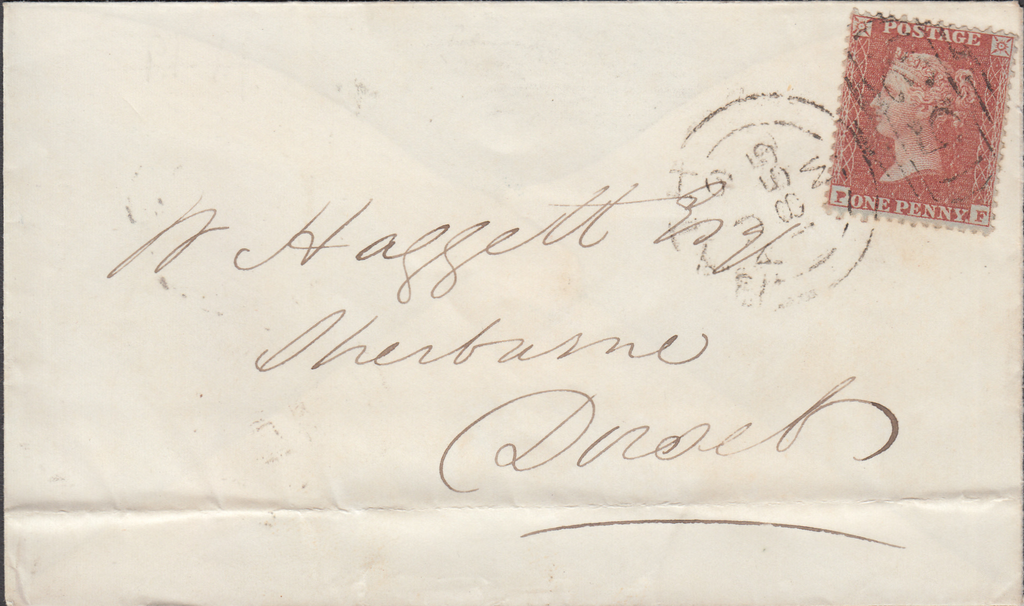 POSTAGE
P ONE PENNY F
W Haggett Esqr
Sherburne
Dorset